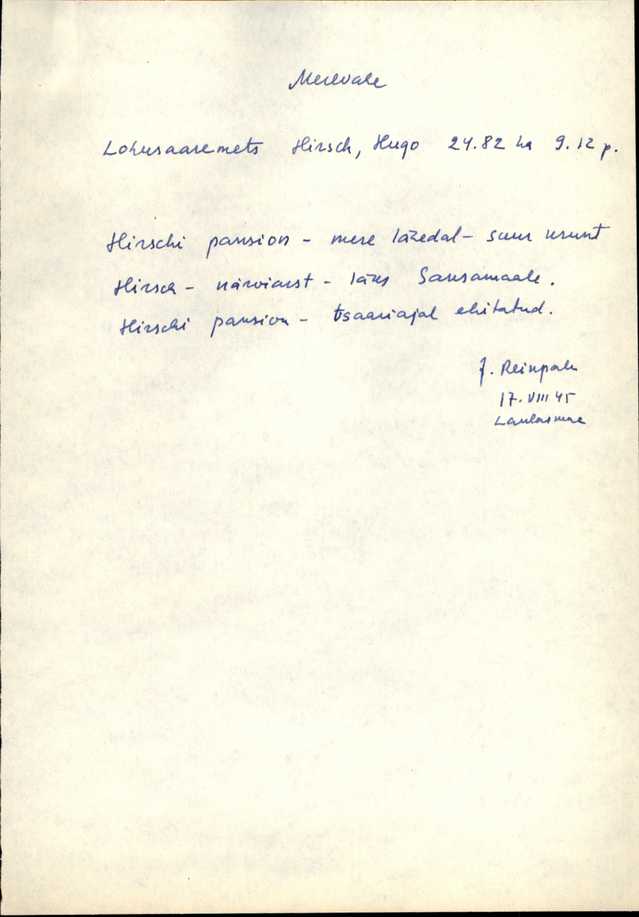 Merevale
Lohusaaremets Hirsch, Hugo 24.82 ha 9.12 p.
Hirschi pansion - mere lähedal - suur krunt
Hirsch - närviarst - läks Saksamaale.
Hirschi pansion - tsaariajal ehitatud.
J. Reinpalu
17. VIII 45
Laulasmae